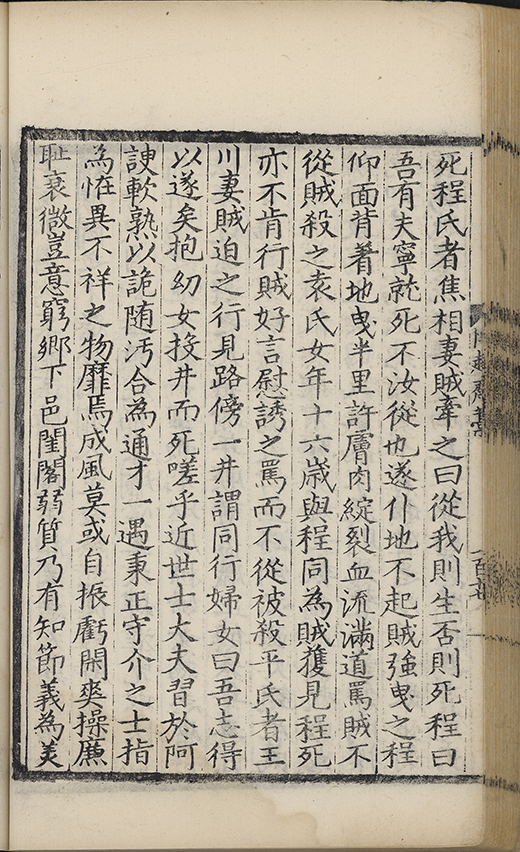 死程氏者焦相妻賊牽之曰從我則生否則死程曰
吾有夫寧就死不汝從也遂仆地不起賊強曳之程
仰面背著地曳半里許膚肉綻裂血流滿道罵賊不
從賊殺之袁氏女年十六歲與程同為賊獲見程死
亦不肯行賊好言慰誘之罵而不從被殺平氏者王
川妻賊迫之行見路傍一井謂同行婦女曰吾志得
以遂矣抱幼女投井而死嗟乎近世士大夫習於阿
諛軟熟以詭随汚合為通才一遇秉正守介之士指
為恠異不祥之物靡焉成風莫或自振虧閑爽操廉
耻衰微豈意窮鄉下邑閨閣弱質乃有知節義為美